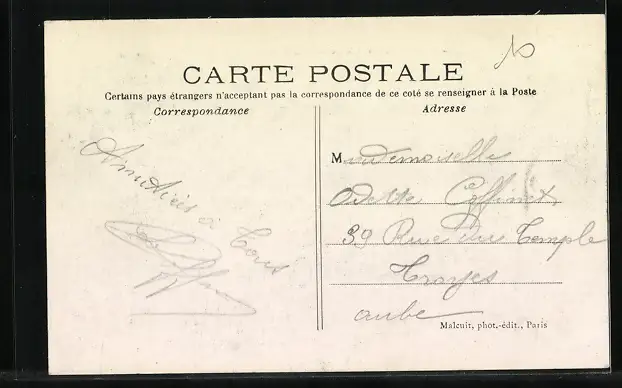 CARTE POSTALE
Certains pays étrangers n'acceptant pas la correspondance de ce coté se renseigner à la Poste
Correspondance
Adresse
Amitiés à
Tous
Mademoiselle
Odette
39 Rue du Temple
Troyes
aube
Malcuit, phot.-édit., Paris